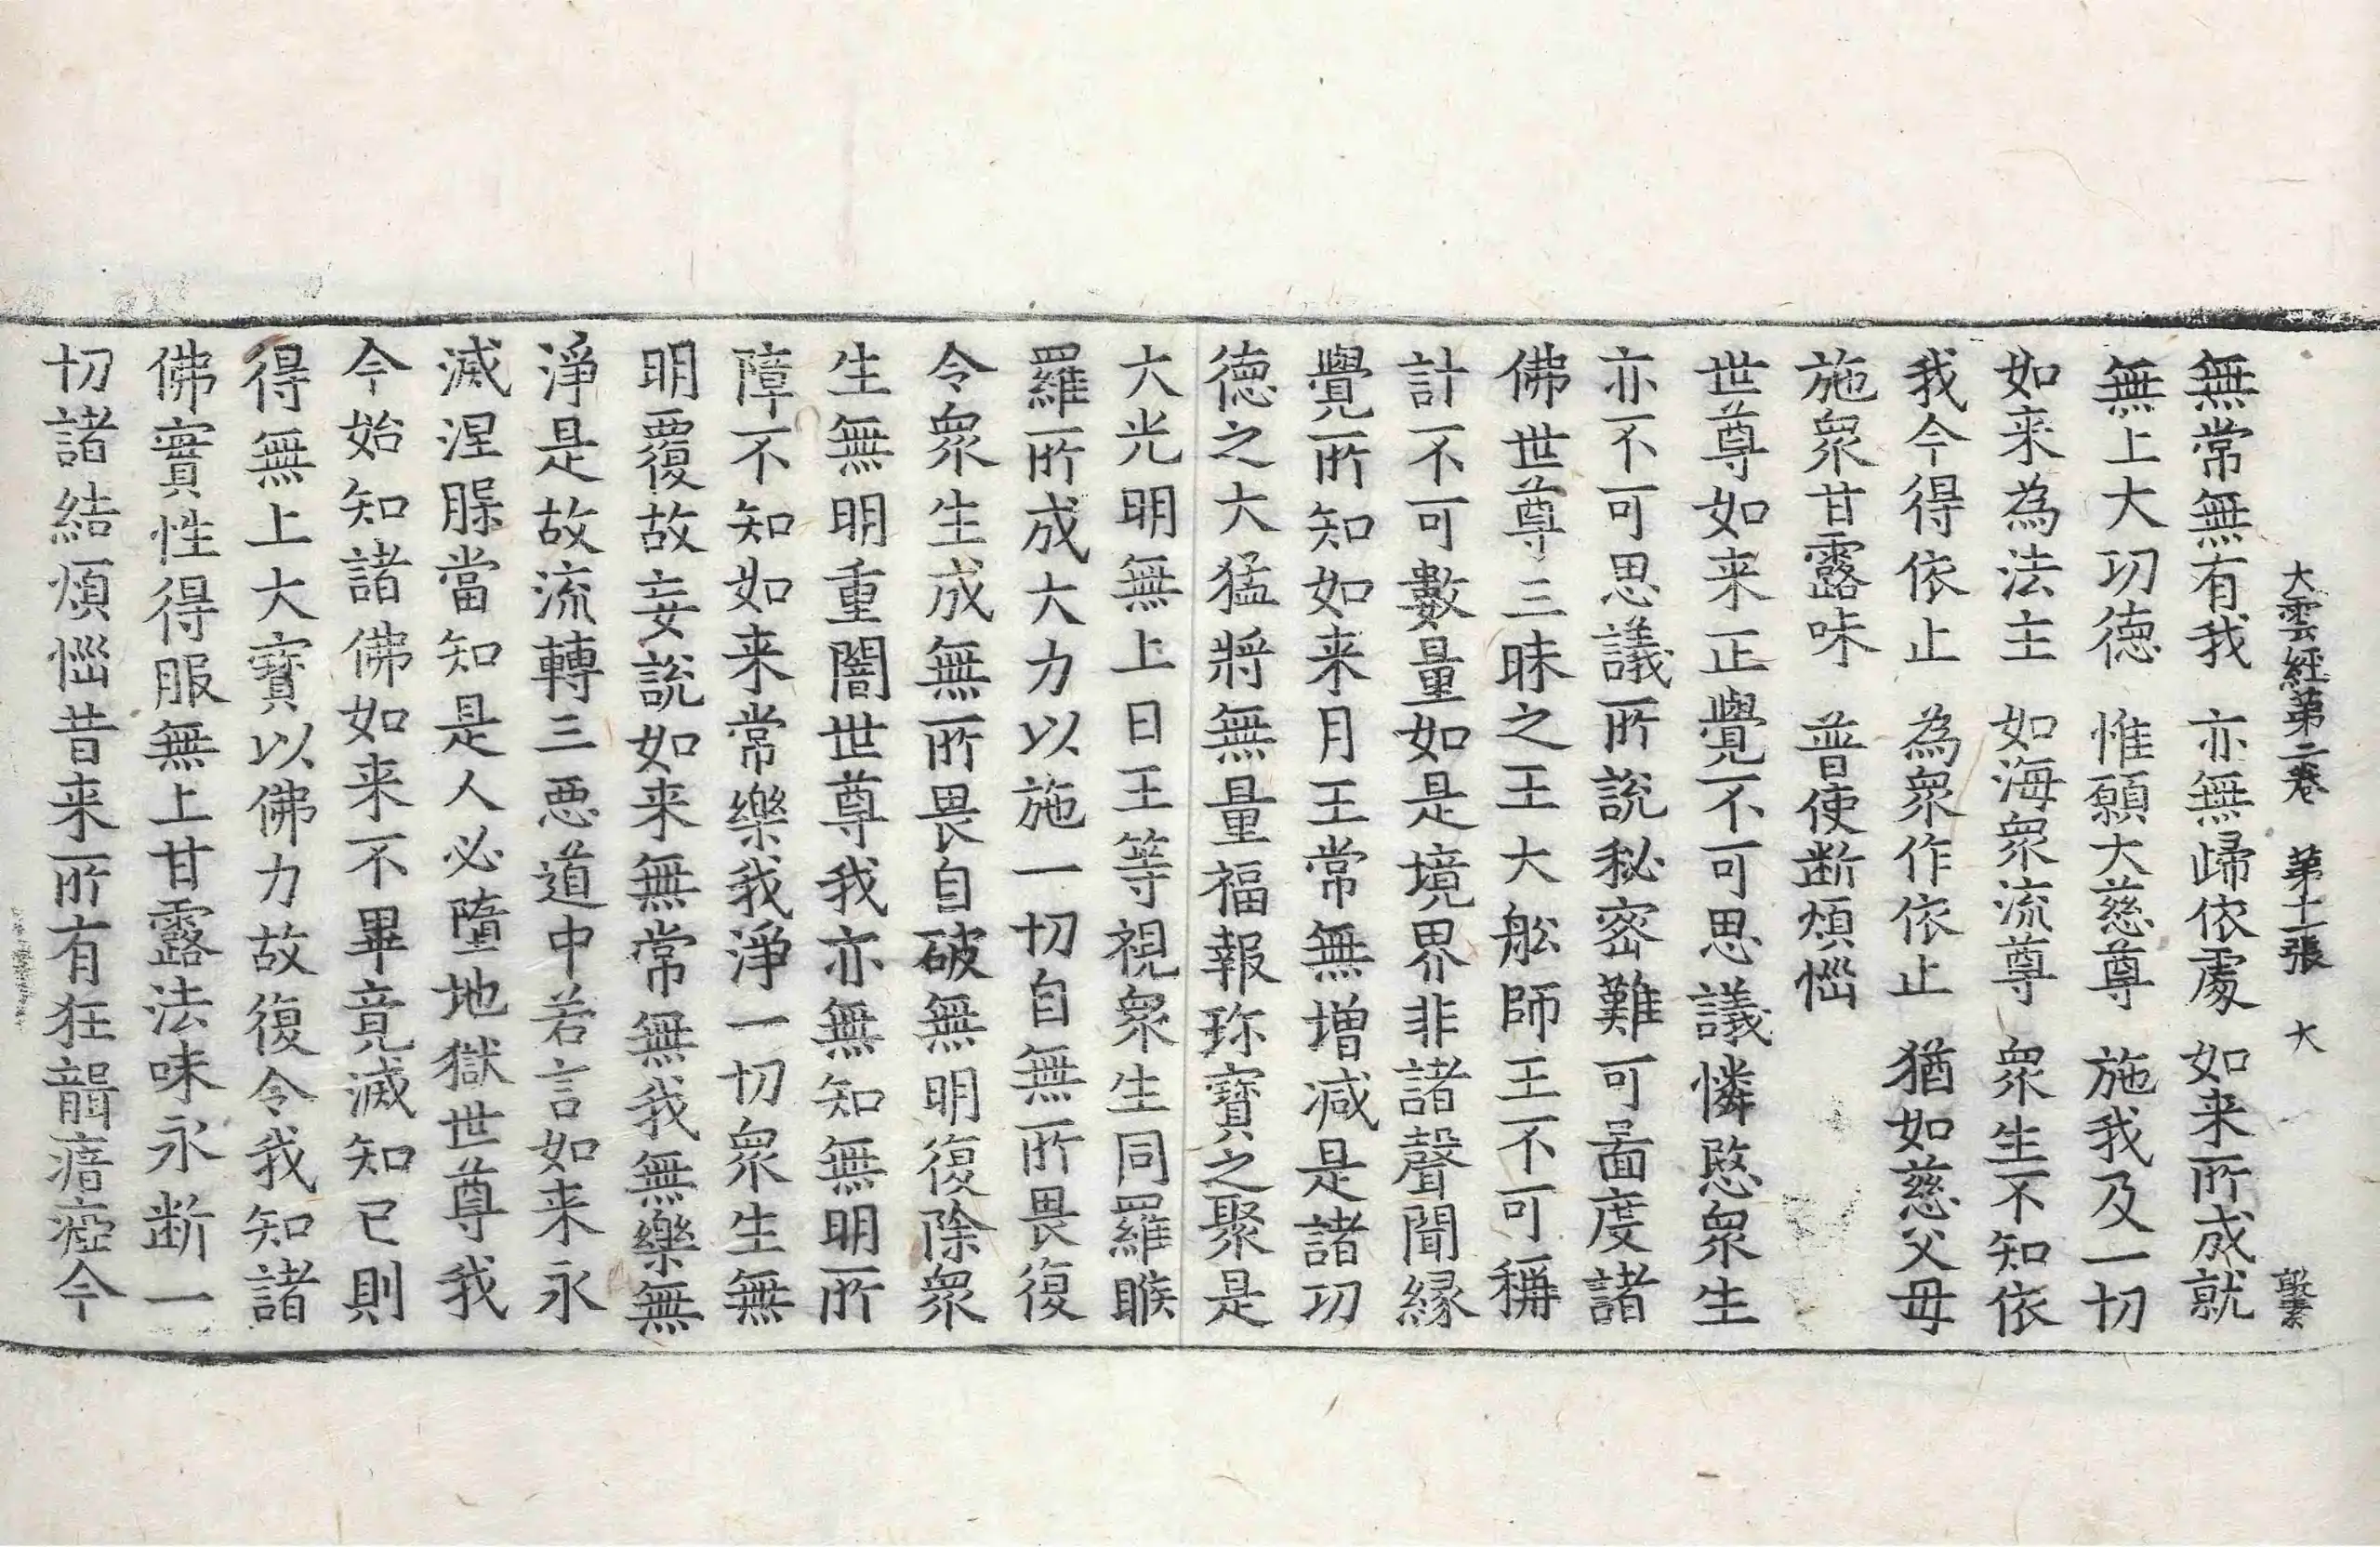 大雲經第二卷　第十二張　大
無常無有我　亦無歸依處　如来所成就
無上大功德　惟願大慈尊　施我及一切
如来為法主　如海衆流尊　衆生不知依
我今得依止　為衆作依止　猶如慈父母
施衆甘露味　普使断煩惱
世尊如来正覺不可思議憐愍衆生
亦不可思議所說秘密難可啚度諸
佛世尊三昧之王大舩師王不可稱
計不可數量如是境界非諸聲聞緣
覺所知如来月王常無增減是諸功
德之大猛將無量福報珎寶之聚是
大光明無上日王等視衆生同羅睺
羅所成大力以施一切自無所畏復
令衆生成無所畏自破無明復除衆
生無明重闇世尊我亦無知無明所
障不知如来常樂我淨一切衆生無
明覆故妄說如来無常無我無樂無
淨是故流轉三惡道中若言如来永
滅涅槃當知是人必墮地獄世尊我
今始知諸佛如来不畢竟滅知已則
得無上大寶以佛力故復令我知諸
佛實性得服無上甘露法味永断一
切諸結煩惱昔来所有狂聾瘖瘂今